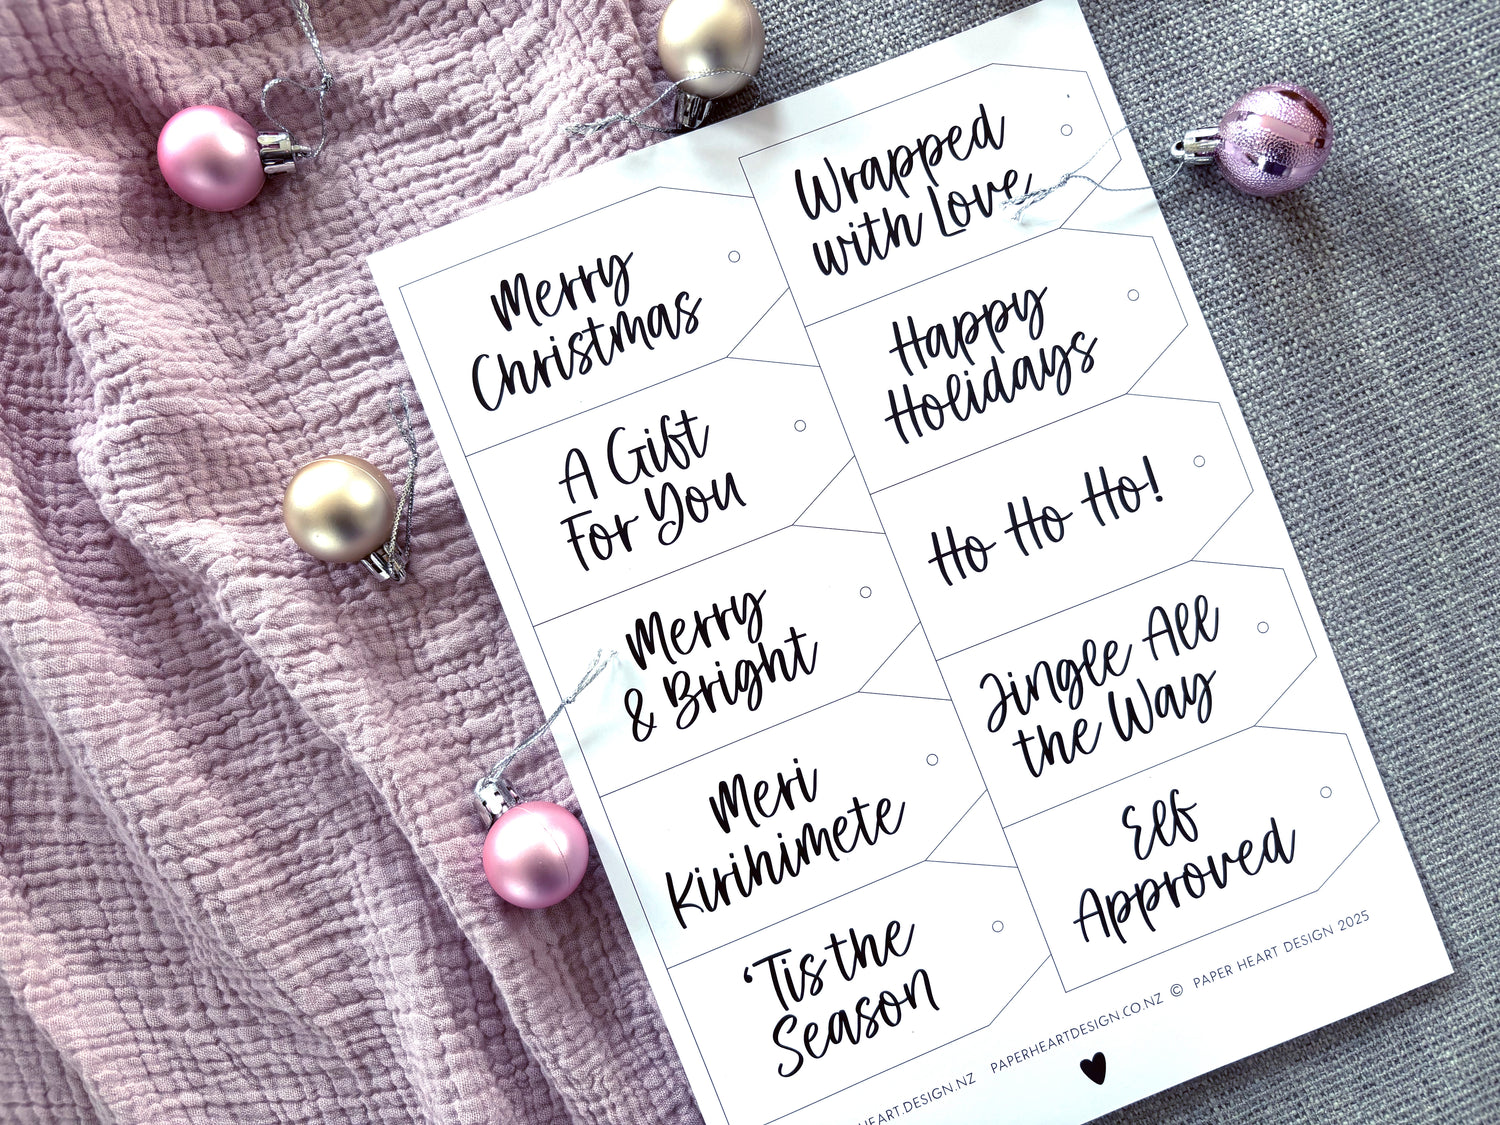 Merry
Christmas
A Gift
For You
Merry
& Bright
Meri
Kirihimete
‘Tis the
Season
Wrapped
with Love
Happy
Holidays
Ho Ho Ho!
Jingle All
the Way
Elf
Approved
HEART.DESIGN.NZ PAPERHEARTDESIGN.CO.NZ © PAPER HEART DESIGN 2025